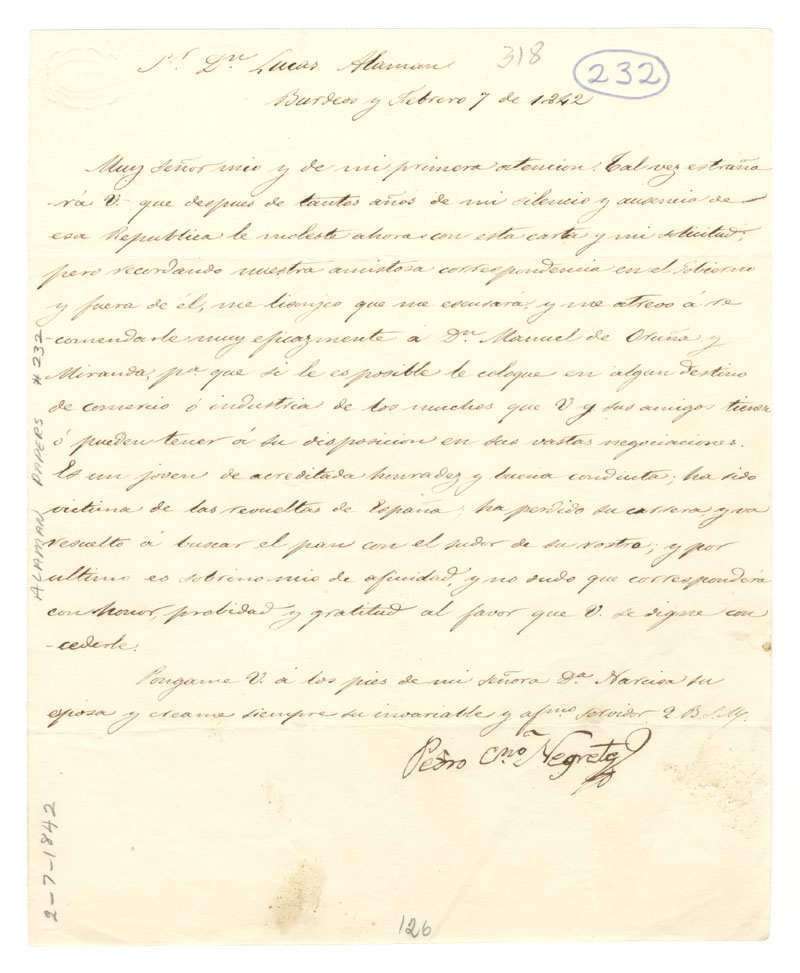 Sr. Dn. Lucas Alaman.
318
232
Burdeos y Febrero 7 de 1842
Muy señor mio y de mi primera atencion. Tal vez estraña
-rá V. que despues de tantos años de mi silencio y ausencia de
esa Republica le moleste ahora con esta carta y mi solicitud;
pero recordando nuestra amistosa correspondencia en el Gobierno
y fuera de él, me lisonjeo que me escusará; y me atrevo á re
-comendarle muy eficazmente á Dn. Manuel de Oruña y
Miranda; pa. que si le es posible le coloque en algun destino
de comercio ó industria de los muchos que V y sus amigos tienen
ó pueden tener á su disposicion en sus vastas negociaciones.
Es un joven de acreditada honradez y buena conducta; ha sido
victima de las revueltas de España; ha perdido su carrera, y va
resuelto á buscar el pan con el sudor de su rostro; y por
ultimo es sobrino mio de afinidad, y no dudo que corresponderá
con honor, probidad y gratitud al favor que V. se digne con
-cederle.
Pongame V. á los pies de mi señora Da. Narcisa su
esposa y creame siempre su invariable y afmo. servidor Q. B. S. M.
Pedro Negrete
ALAMAN PAPERS # 232
2-7-1842
126